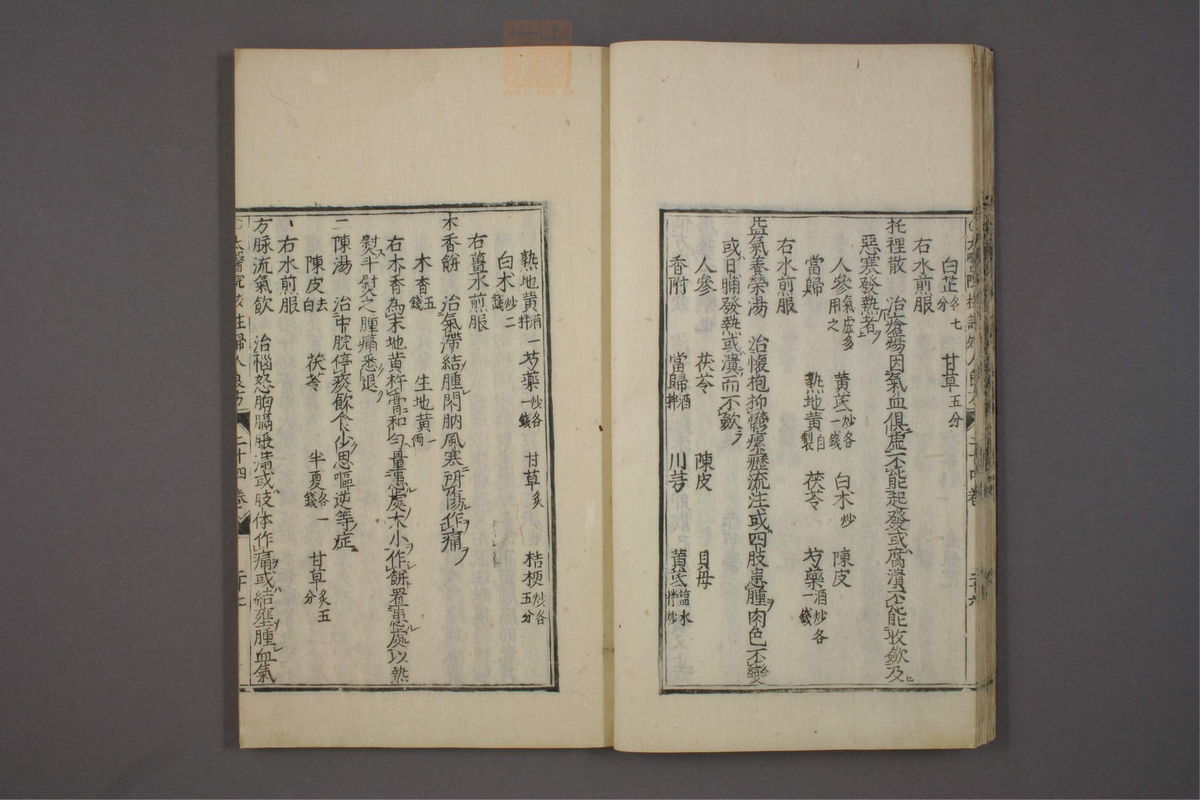 白芷各七分　甘草五分
右水煎服
托裡散　治瘡瘍因氣血俱虛不能起發或腐潰不能收斂及
惡寒發熱者
人參氣虛多用之　黃芪炒各一錢　白术炒　陳皮
當歸　熟地黃自製　茯苓　芍藥酒炒各一錢
右水煎服
益氣養榮湯　治懷抱抑鬱瘰癧流注或四肢患腫肉色不變
或日晡發熱或潰而不斂
人參　茯苓　陳皮　貝母
香附　當歸酒拌　川芎　黃芪鹽水拌炒
二十六
熟地黃酒拌　芍藥炒各一錢　甘草炙　桔梗炒各五分
白术炒二錢
右薑水煎服
木香餅　治氣滯結腫閃肭風寒所傷作痛
木香五錢　生地黃一兩
右木香為末地黃杵膏和勻量患處大小作餅置患處以熱
熨斗熨之腫痛悉退
二陳湯　治中脘停痰飲食少思嘔逆等症
陳皮去白　茯苓　半夏各一錢　甘草炙五分
右水煎服
方脉流氣飲　治惱怒胸膈脹滿或肢体作痛或結壅腫血氣
太醫院校註婦人良方　二十四卷　二十七